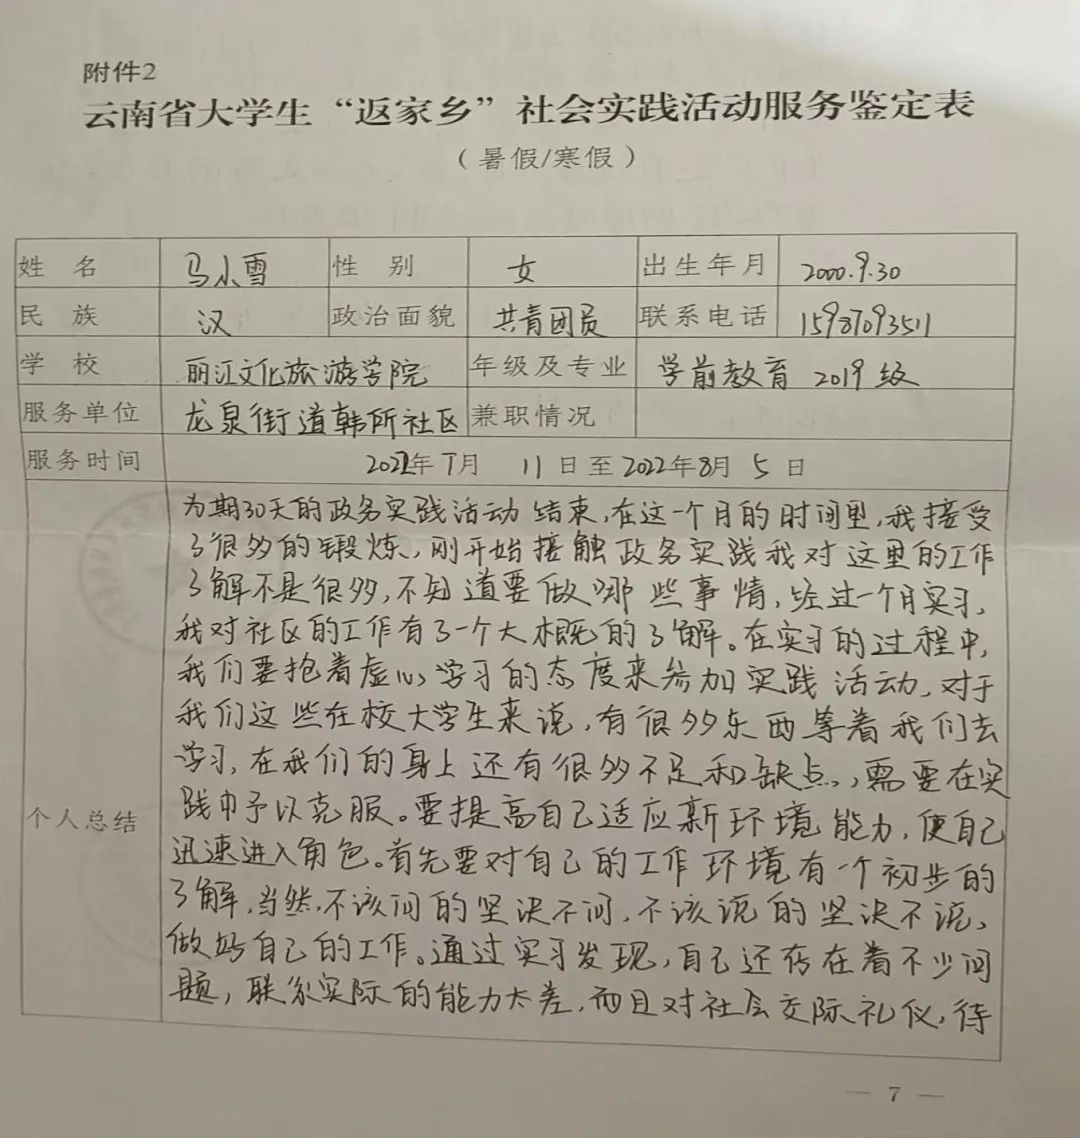 附件2
云南省大学生“返家乡”社会实践活动服务鉴定表
（暑假/寒假）
姓 名 马小雪 性 别 女 出生年月 2000.9.30
民 族 汉 政治面貌 共青团员 联系电话 15987093511
学 校 丽江文化旅游学院 年级及专业 学前教育 2019级
服务单位 龙泉街道韩所社区 兼职情况
服务时间 2022年7月 11日至2022年8月5日
个人总结
为期30天的政务实践活动结束,在这一个月的时间里,我接受
了很多的锻炼,刚开始接触政务实践我对这里的工作
了解不是很多,不知道要做哪些事情,经过一个月实习,
我对社区的工作有了一个大概的了解。在实习的过程中,
我们要抱着虚心学习的态度来参加实践活动,对于
我们这些在校大学生来说,有很多东西等着我们去
学习,在我们的身上还有很多不足和缺点,需要在实
践中予以克服。要提高自己适应新环境能力,使自己
迅速进入角色。首先要对自己的工作环境有一个初步的
了解,当然,不该问的坚决不问,不该说的坚决不说,
做好自己的工作。通过实习发现,自己还存在着不少问
题,联系实际的能力太差,而且对社会交际礼仪,待
— 7 —